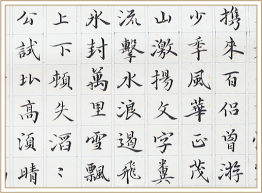 携來百侣曾游
少秊風華正茂
山激揚文字糞
流擊水浪遏飛
氷封萬里雪飄
上下頓失滔〻
公試比高湏晴